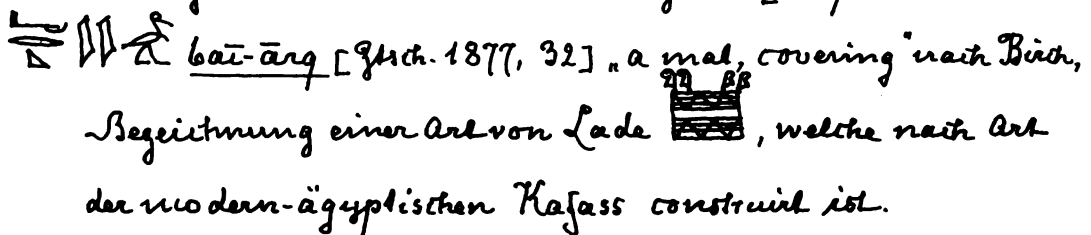 baī-ārq [Ztsch. 1877, 32] „a mat, covering“ nach Birch,
Bezeichnung einer Art von Lade , welche nach Art
der modern-ägyptischen Kafass construirt ist.